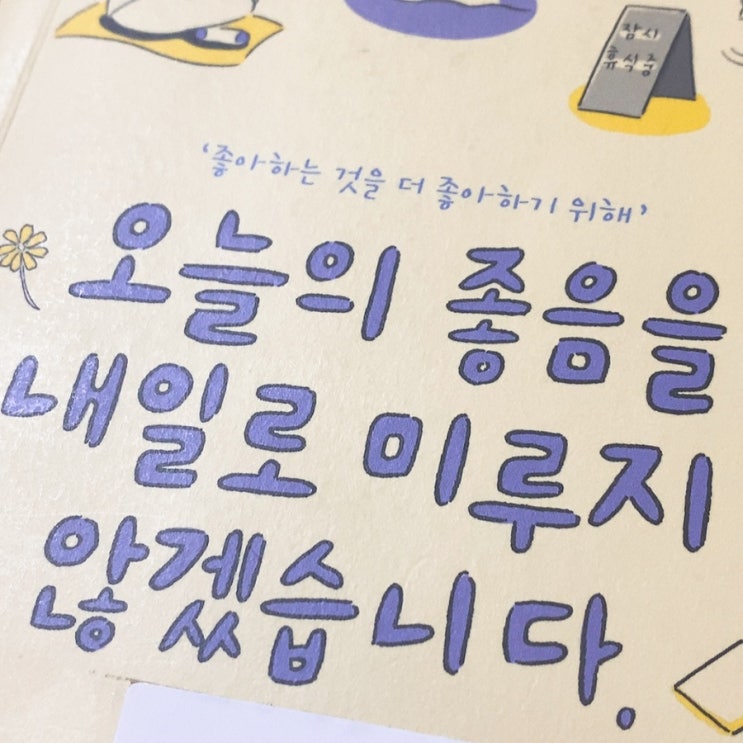 잠시
휴식중
‘좋아하는 것을 더 좋아하기 위해’
오늘의 좋음을
내일로 미루지
않겠습니다.